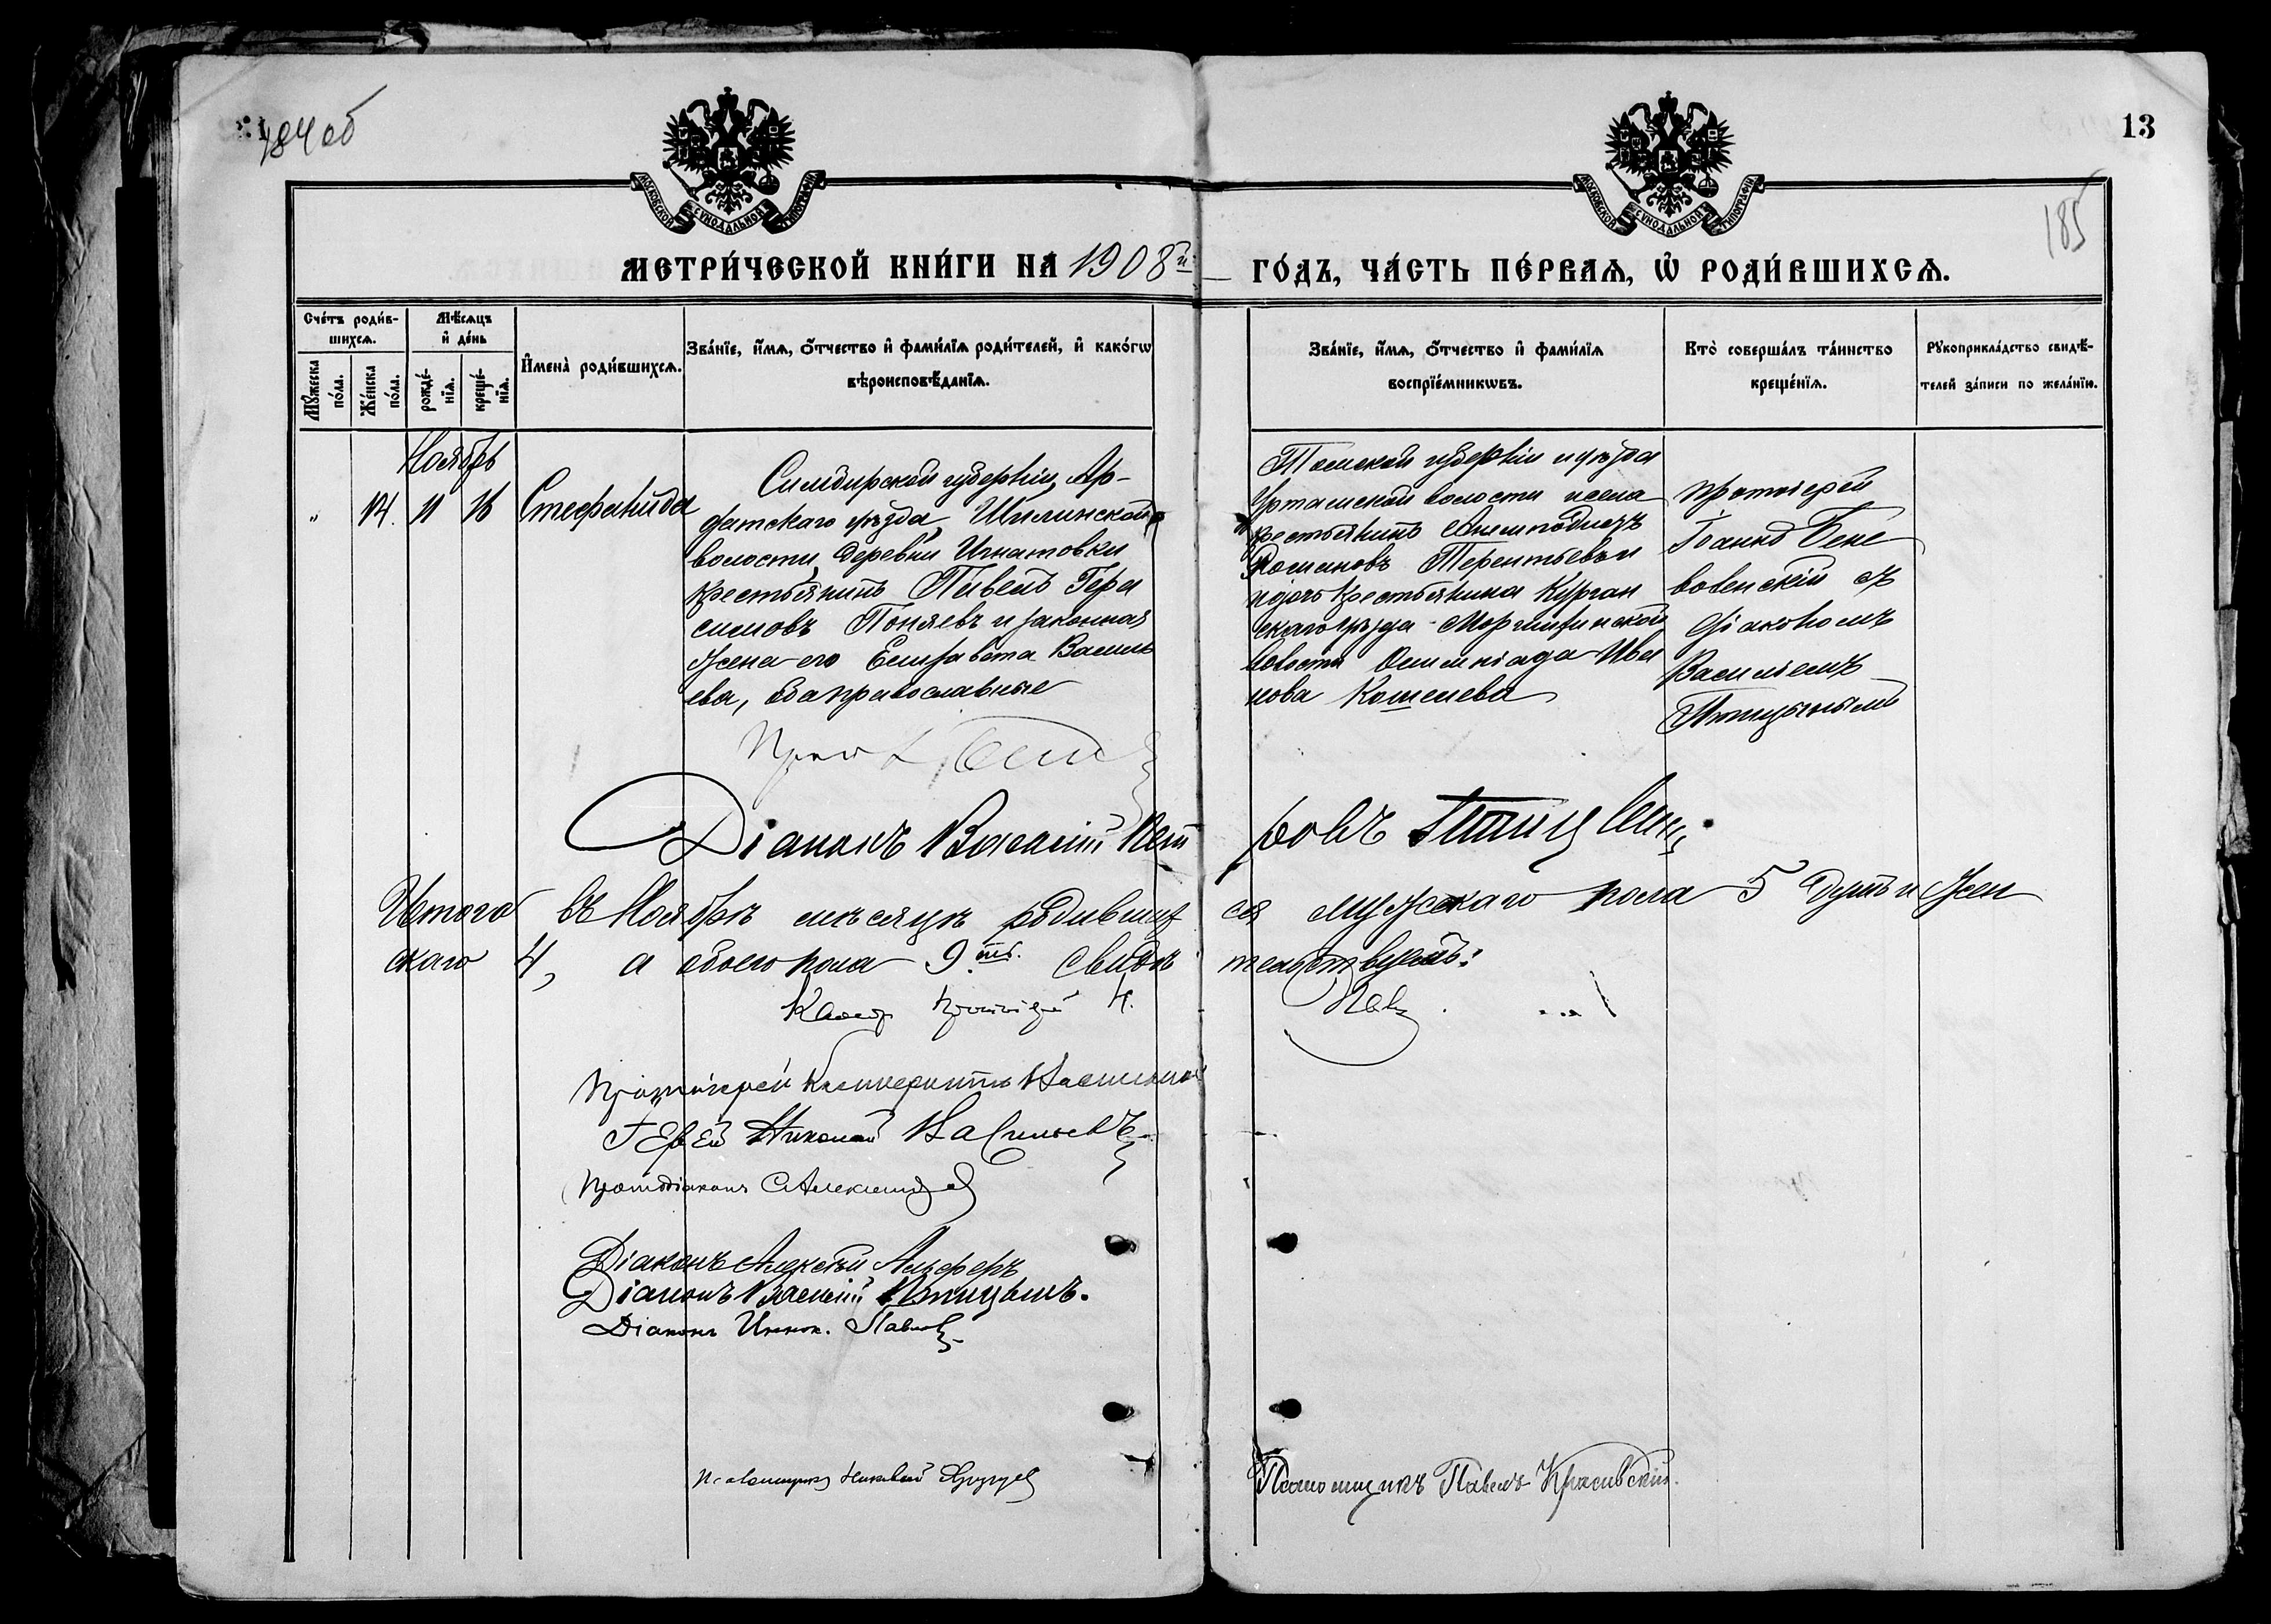 184 об
13
185
МОСКОВСКОЙ СѴНОДАЛЬНОЙ ТИПОГРАФІИ
МОСКОВСКОЙ СѴНОДАЛЬНОЙ ТИПОГРАФІИ
МЕТРИ́ЧЕСКОЙ КНИ́ГИ НА 1908й
ГО́ДЪ, ЧА́СТЬ ПЕ́РВАѦ, Ѡ҆ РОДИ́ВШИХСѦ.
Сче́тъ роди́в-
шихсѧ.
Мꙋ́жеска по́ла.
Же́нска по́ла.
Мѣ́сѧцъ
и҆ де́нь
рожде́-нїѧ.
креще́-нїѧ.
И҆мена̀ роди́вшихсѧ.
Зва́нїе, и҆́мѧ, ѻ҆́тчество и҆ фами́лїѧ роди́телей, и҆ како́гѡ
вѣроисповѣ́данїѧ.
Зва́нїе, и҆́мѧ, ѻ҆́тчество и҆ фами́лїѧ
воспрїе́мникѡвъ.
Кто̀ соверша́лъ та́инство
креще́нїѧ.
Рꙋкоприкла́дство свидѣ́-
телей за́писи по жела́нїю.
Ноябрь
" 14. 11 16 Стефанида
Симбирской губерніи, Ар-
датскаго уѣзда, Шилинской
волости, деревни Игнатовки
крестьянинъ Павелъ Гера
симовъ Поняевъ и законная
жена его Елизавета Василь
ева, оба православные
Томской губерніи и уѣзда
волости и села
крестьянинъ
Романовъ Терентьевъ и
дочь крестьянина Курган
скаго уѣзда
волости Ива
нова Кошелева
Протоіерей
Іоаннъ Бене
воленскій съ
діакономъ
Василіемъ
Птицынымъ
Діаконъ Василій Пет
ровъ Птицынъ
Итого въ Ноябрѣ мѣсяцѣ родивших
ся мужескаго пола 5 душъ и жен
скаго 4, а обоего пола 9ть. Свидѣ
тельствуемъ:
Протоіерей
Іерей Николай Васильевъ
Протодіаконъ С. Александровъ
Діаконъ Алексѣй
Діаконъ Василій Птицынъ.
Діаконъ Иннок. Павловъ
Псаломщикъ Николай
Псаломщикъ Павелъ Красивскій.